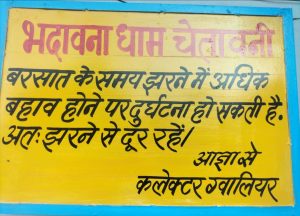 भदावना धाम चेतावनी
बरसात के समय झरने में अधिक
बहाव होने पर दुर्घटना हो सकती है.
अतः झरने से दूर रहें।
आज्ञा से
कलेक्टर ग्वालियर